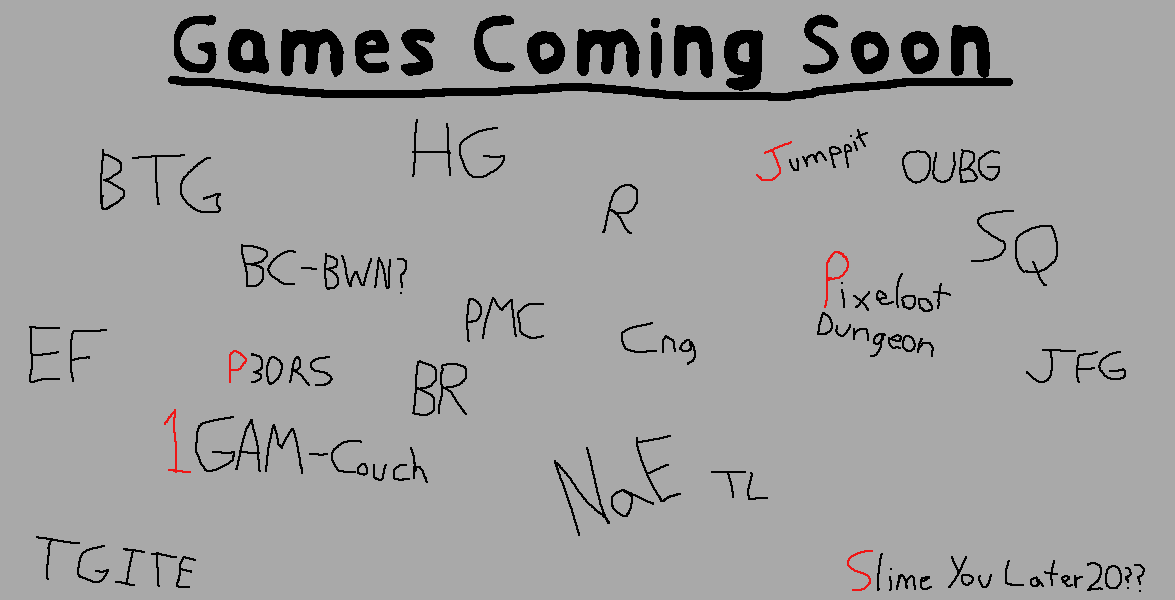 Games Coming Soon
HG
BTG
Jumppit
OUBG
R
SQ
BC-BWN?
Pixeloot
Dungeon
PMC
Cng
EF
P30RS
BR
JFG
1GAM-Couch
NaE
TL
TGITE
Slime You Later20??